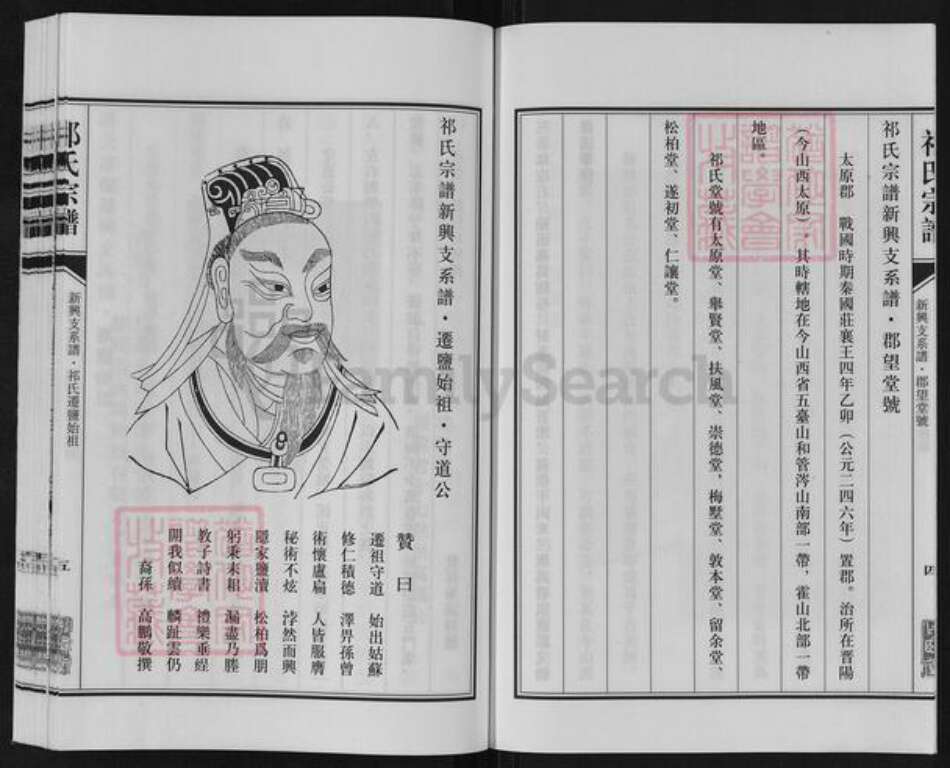 祁氏宗譜
祁氏宗譜新興支系譜·郡望堂號
太原郡　戰國時期秦國莊襄王四年乙卯（公元二四六年）置郡。治所在晋陽
（今山西太原），其時轄地在今山西省五臺山和管涔山南部一帶，霍山北部一帶
地區。
祁氏堂號有太原堂、舉賢堂、扶風堂、崇德堂、梅墅堂、敦本堂、留余堂、
松柏堂、遂初堂、仁讓堂。
新興支系譜·郡望堂號
四
祁氏宗譜新興支系譜·遷鹽始祖·守道公
贊曰
遷祖守道　始出姑蘇
修仁積德　澤畀孫曾
術懷盧扁　人皆服膺
秘術不炫　浡然而興
隱家鹽瀆　松柏爲朋
躬秉耒耜　漏盡乃塍
教子詩書　禮樂垂經
開我似續　麟趾雲仍
裔孫　高鵬敬撰
祁氏宗譜
新興支系譜·祁氏遷鹽始祖
五
FamilySearch